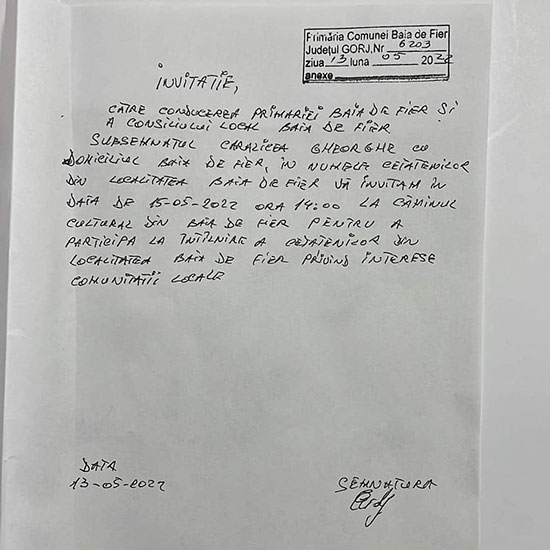 Primăria Comunei Baia de Fier
Județul GORJ, Nr 6203
ziua 13 luna 05 2022
anexe
INVITAȚIE,
CĂTRE CONDUCEREA PRIMARIEI BAIA DE FIER ȘI
A CONSILIULUI LOCAL BAIA DE FIER
SUBSEMNATUL CARALICEA GHEORGHE CU
DOMICILIUL BAIA DE FIER, ÎN NUMELE CETATENILOR
DIN LOCALITATEA BAIA DE FIER VĂ INVITAM ÎN
DATA DE 15-05-2022 ORA 14:00 LA CĂMINUL
CULTURAL DIN BAIA DE FIER PENTRU A
PARTICIPA LA ÎNTÎLNIRE A CETATENILOR DIN
LOCALITATEA BAIA DE FIER PRIVIND INTERESE
COMUNITATII LOCALE
DATA
13-05-2022
SEMNATURA